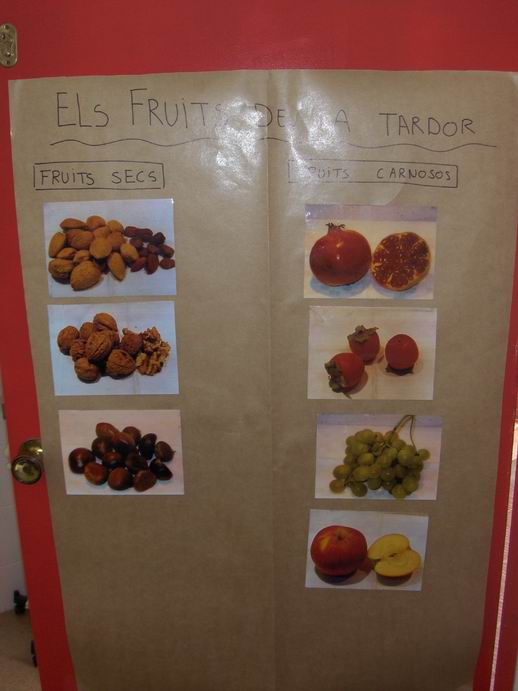 ELS FRUITS DE LA TARDOR
FRUITS SECS
FRUITS CARNOSOS